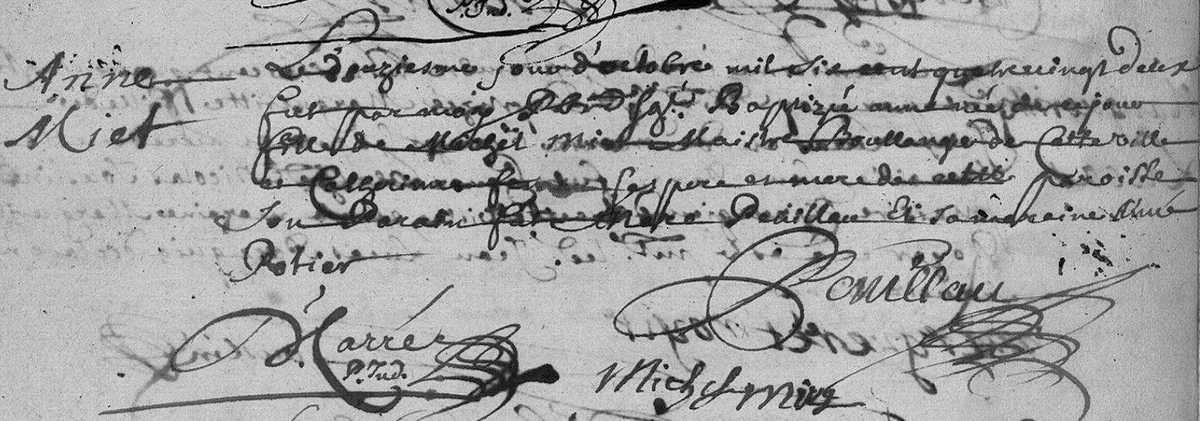 P. Jud.
Anne
Miet
Le douziesme jour d'octobre mil six cent quatre vingt deux
fut par moy Baptizée anne née de ce jour
fille de Michel Miet Maistre Boullanger de Cette ville
et Catherine ses pere et mere de cette paroisse
son Parain Pouillau Et sa maraine Anne
Potier
Pouillau
D. Carré
P. Jud.
Michel Miet